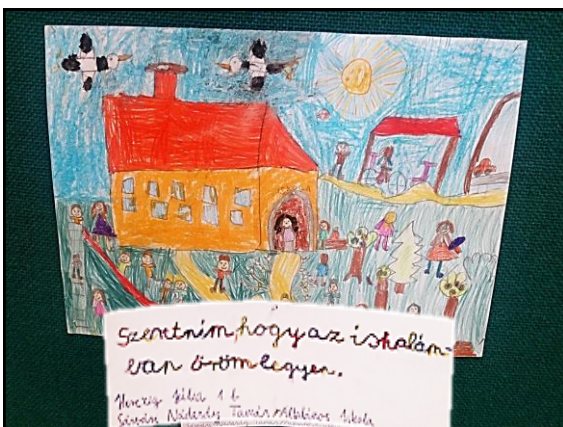 Szeretném, hogy az iskolám-
ban öröm legyen.
Herczeg Júlia 1. b
Nádasdy Tamás Általános Iskola